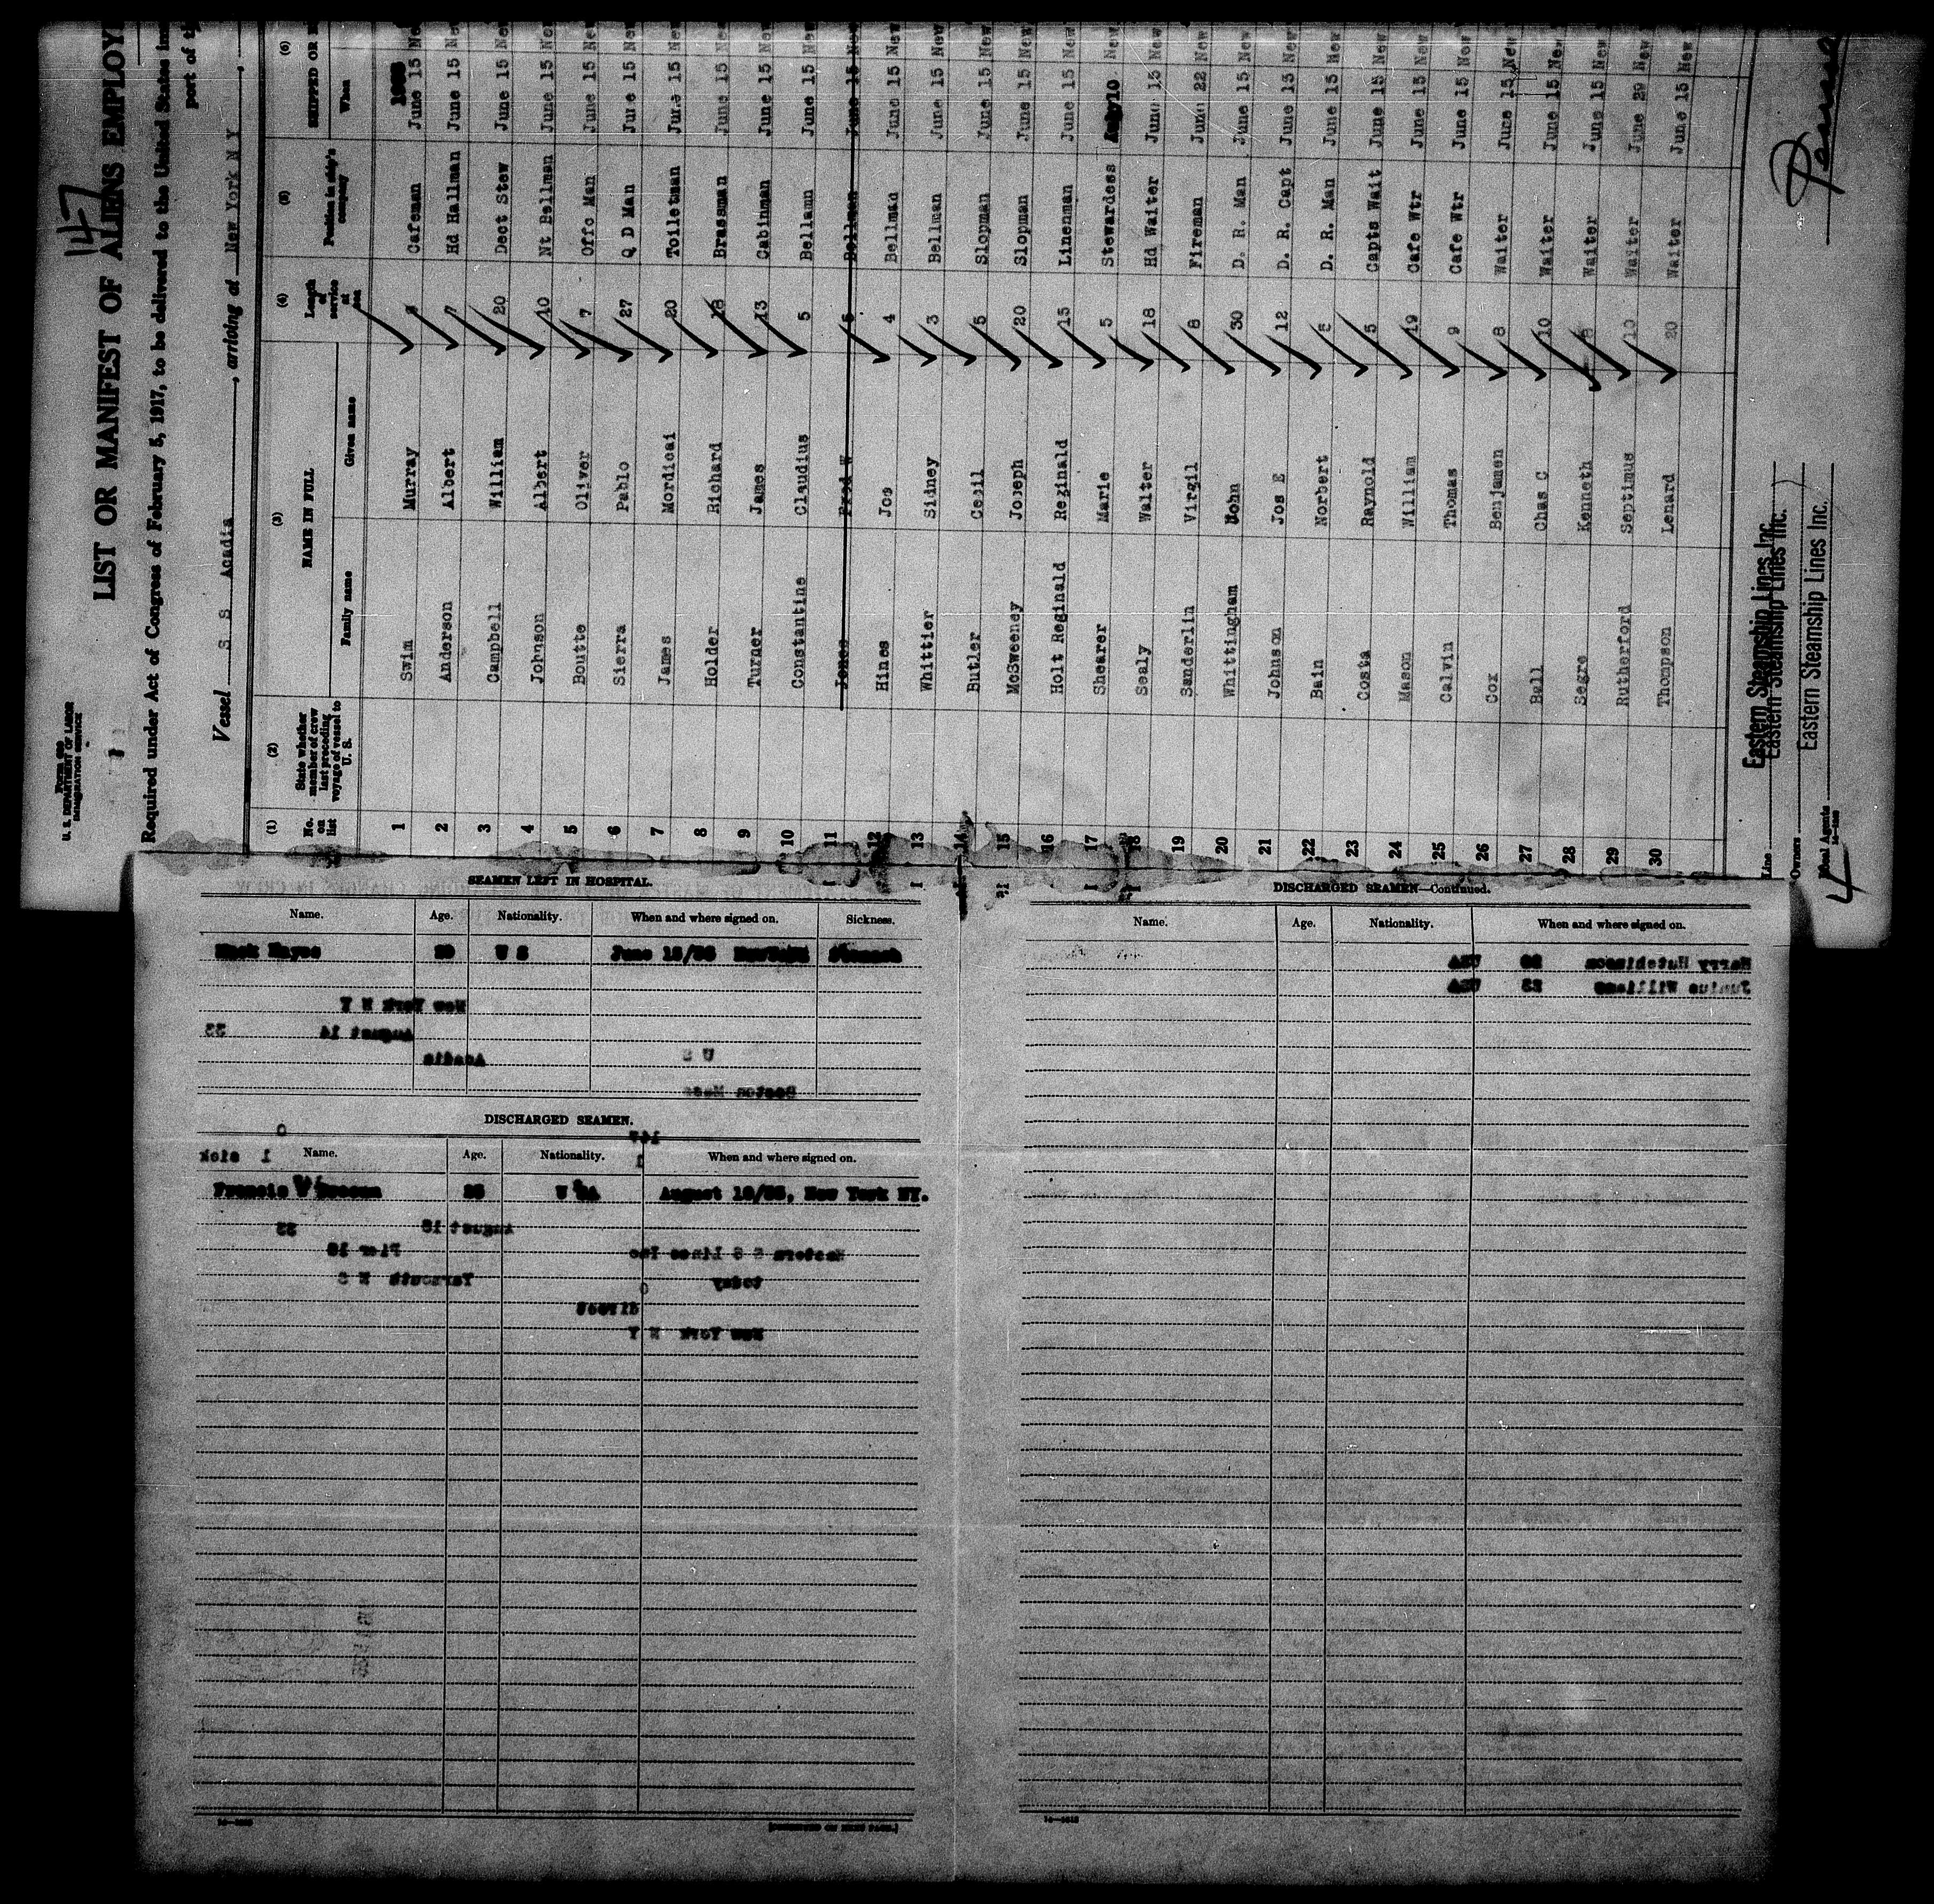 147
LIST OR MANIFEST OF ALIENS EMPLOY
Form 689
U. S. DEPARTMENT OF LABOR
IMMIGRATION SERVICE
Required under Act of Congress of February 5, 1917, to be delivered to the United States
port of
Vessel S S Acadia , arriving at New York N Y ,
(1) (2) (3) (4) (5) (6)
No. on list State whether member of crew last preceding voyage of vessel to U. S. NAME IN FULL Length of service at sea Position in ship's company SHIPPED OR
Family name Given name When
1 Swim Murray Cafeman June 15
2 Anderson Albert 7 Hd Hallman June 15
3 Campbell William 20 Dect Stew June 15
4 Johnson Albert 10 Nt Bellman June 15
5 Boutte Oliver 7 Offc Man June 15
6 Sierra Pablo 27 Q D Man June 15
7 James Mordicai 20 Toiletman June 15
8 Holder Richard 18 Brassman June 15
9 Turner James 13 Cabinman June 15
10 Constantine Claudius 5 Bellamn June 15
11 Jones Fred W 5 Bellman June 15 New
12 Hines Jos 4 Bellman June 15 New
13 Whittier Sidney 3 Bellman June 15 New
14 Butler Cecil 5 Slopman June 15 New
15 McSweeney Joseph 20 Slopman June 15 New
16 Holt Reginald Reginald 15 Linenman June 15 New
17 Shearer Marie 5 Stewardess Aug 10 New
18 Sealy Walter 18 Hd Waiter June 15 New
19 Sanderlin Virgil 8 Fireman June 22 New
20 Whittingham John 30 D. R. Man June 15 New
21 Johnson Jos E 12 D. R. Capt June 15 New
22 Bain Norbert D. R. Man June 15 New
23 Costa Raynold 5 Capts Wait June 15 New
24 Mason William 19 Cafe Wtr June 15 New
25 Calvin Thomas 9 Cafe Wtr June 15 New
26 Cox Benjamen 8 Waiter June 15 New
27 Bell Chas C 10 Waiter June 15 New
28 Segre Kenneth Waiter June 15 New
29 Rutherford Septimus 10 Waiter June 29 New
30 Thompson Lenard 20 Waiter June 15 New
Line Eastern Steamship Lines Inc.
Eastern Steamship Lines Inc.
Owners Eastern Steamship Lines Inc.
Local Agents
4
SEAMEN LEFT IN HOSPITAL.
Name. Age. Nationality. When and where signed on. Sickness.
Mack Hayes U S June 15/33 New York Stomach
New York N Y
August 14 33
Acadia U S
Boston Mass
DISCHARGED SEAMEN.
0 147
1 sick 1
Name. Age. Nationality. When and where signed on.
Francis U SA August 10/33, New York NY.
August 18 33
Eastern S S Lines Inc Pier 18
today Yarmouth N S
0
New York N Y
[CONTINUED ON NEXT PAGE.]
DISCHARGED SEAMEN—Continued.
Name. Age. Nationality. When and where signed on.
Harry Hutchinson USA
Junius Williams 23 USA